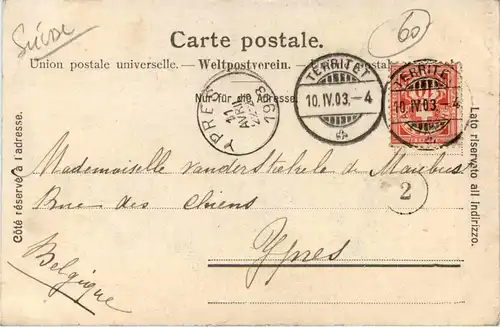 Suisse
60
Carte postale.
Union postale universelle. — Weltpostverein. — postale
Nur für die Adresse.
TERRITET
10.IV.03.–4
TERRITET
10.IV.03.–4
YPRES
11
AVRIL
1903
2
Côté réservé à l'adresse.
Lato riservato all indirizzo.
Mademoiselle vanderStichele de Maubus
Rue des Chiens
Ypres
Belgique